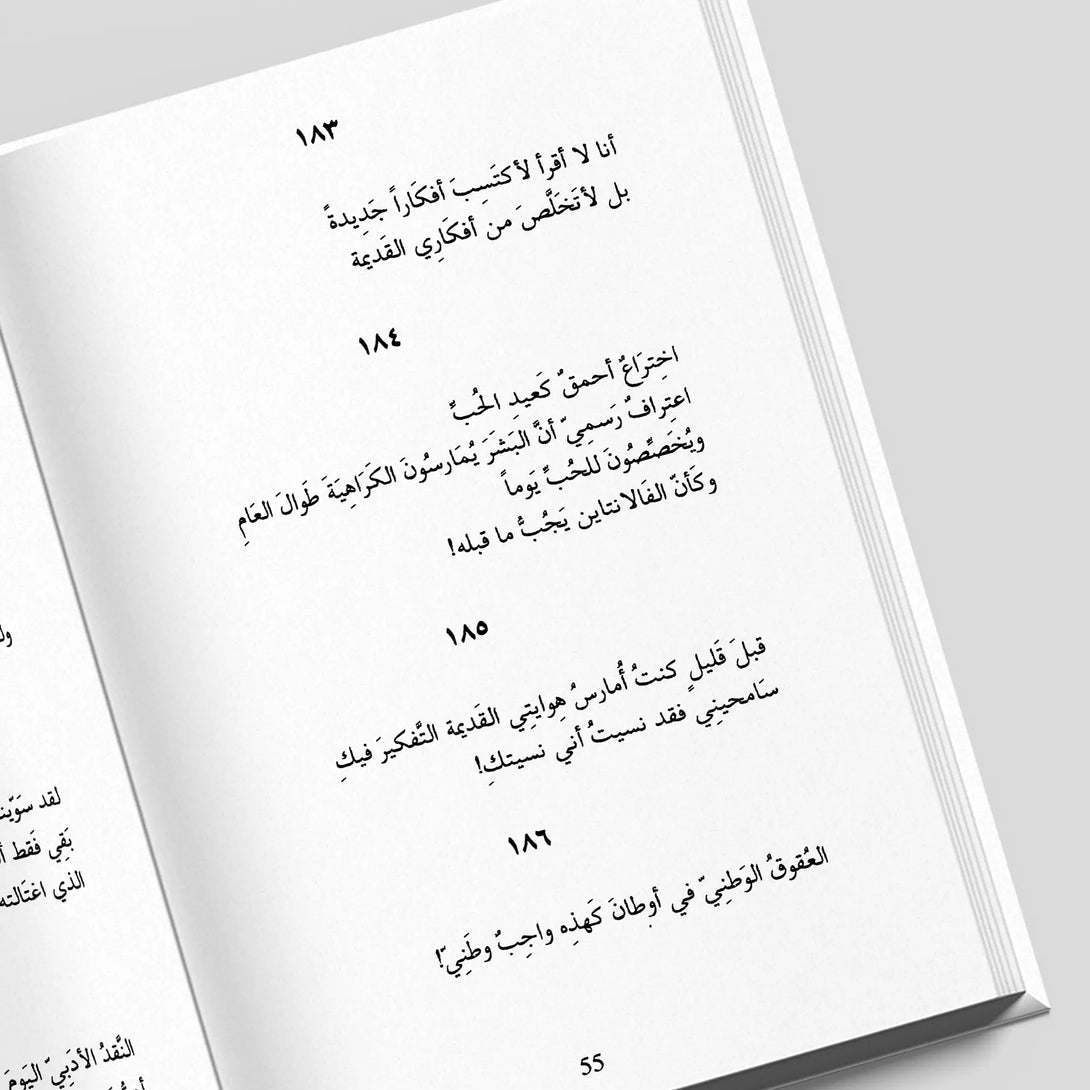 ١٨٣
أنا لا أقرأ لأكتَسِبَ أفكَاراً جَدِيدةً
بل لأتَخَلَّصَ من أفكَارِي القَديمة
١٨٤
اختِرَاعٌ أحمقٌ كَعيدِ الحُبِّ
اعتِرافٌ رَسمِيّ أنَّ البَشَرَ يُمَارسُونَ الكَرَاهِيَةَ طَوَالَ العَامِ
ويُخَصِّصُونَ للحُبِّ يَوماً
وكَأنّ الفَالانتاين يَجُبُّ ما قبله!
١٨٥
قبلَ قَليلٍ كنتُ أُمارسُ هِوايتِي القَديمة التَّفكيرَ فيكِ
سَامحينِي فقد نسيتُ أني نسيتكِ!
١٨٦
العُقوقُ الوَطنِيّ في أوطانَ كَهذِه واجِبٌ وطَنِيّ!
55
لقد سوَّينا
بَقِي فَقط
الذي اغتَالته
النَّقدُ الأدَبِيّ اليَومَ